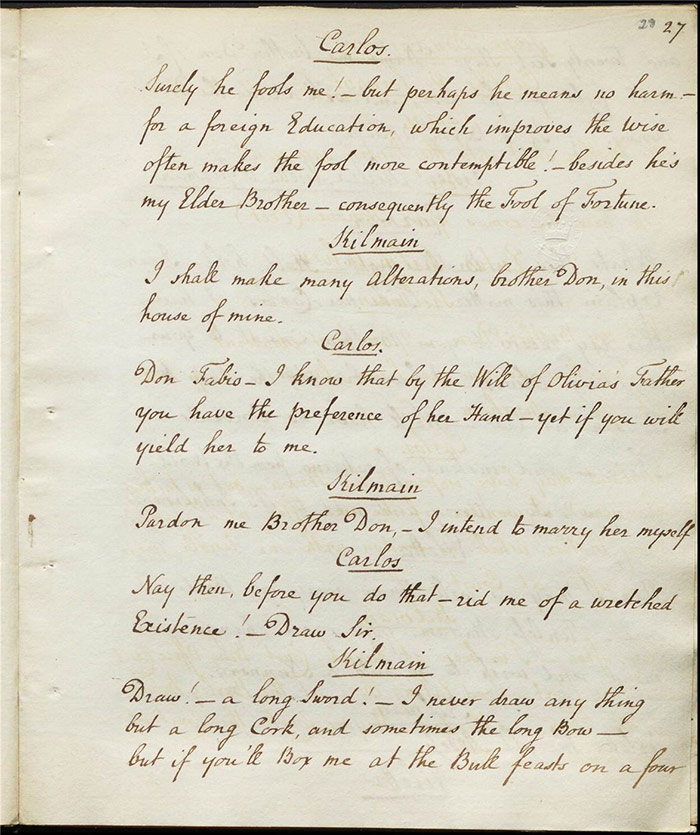 28 27
Carlos.
Surely he fools me! - but perhaps he means no harm -
for a foreign Education, which improves the wise
often makes the fool more contemptible! - besides he's
my Elder Brother - consequently the Fool of Fortune.
Kilmain
I shall make many Alterations, brother Don, in this
house of mine.
Carlos.
Don Fabio - I know that by the Will of Olivia's Father
you have the preference of her Hand - yet if you will
yield her to me.
Kilmain
Pardon me Brother Don, - I intend to marry her myself
Carlos
Nay then, before you do that - rid me of a wretched
Existence! - Draw Sir.
Kilmain
Draw! - a long Sword! - I never draw any thing
but a long Cork, and sometimes the long Bow -
but if you'll Box me at the Bull feasts on a four